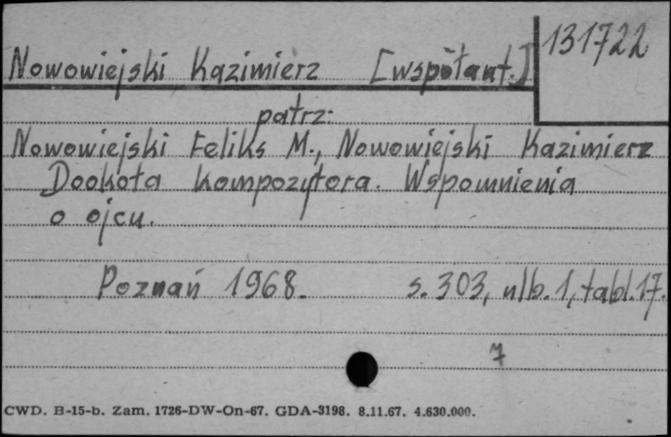 131722
Nowowiejski Kazimierz [współaut.]
patrz:
Nowowiejski Feliks M., Nowowiejski Kazimierz
Dookoła kompozytora. Wspomnienia
o ojcu.
Poznań 1968. s. 303, nlb. 1, tabl. 17.
7
CWD. B-15-b. Zam. 1726-DW-On-67. GDA-3198. 8.11.67. 4.630.000.